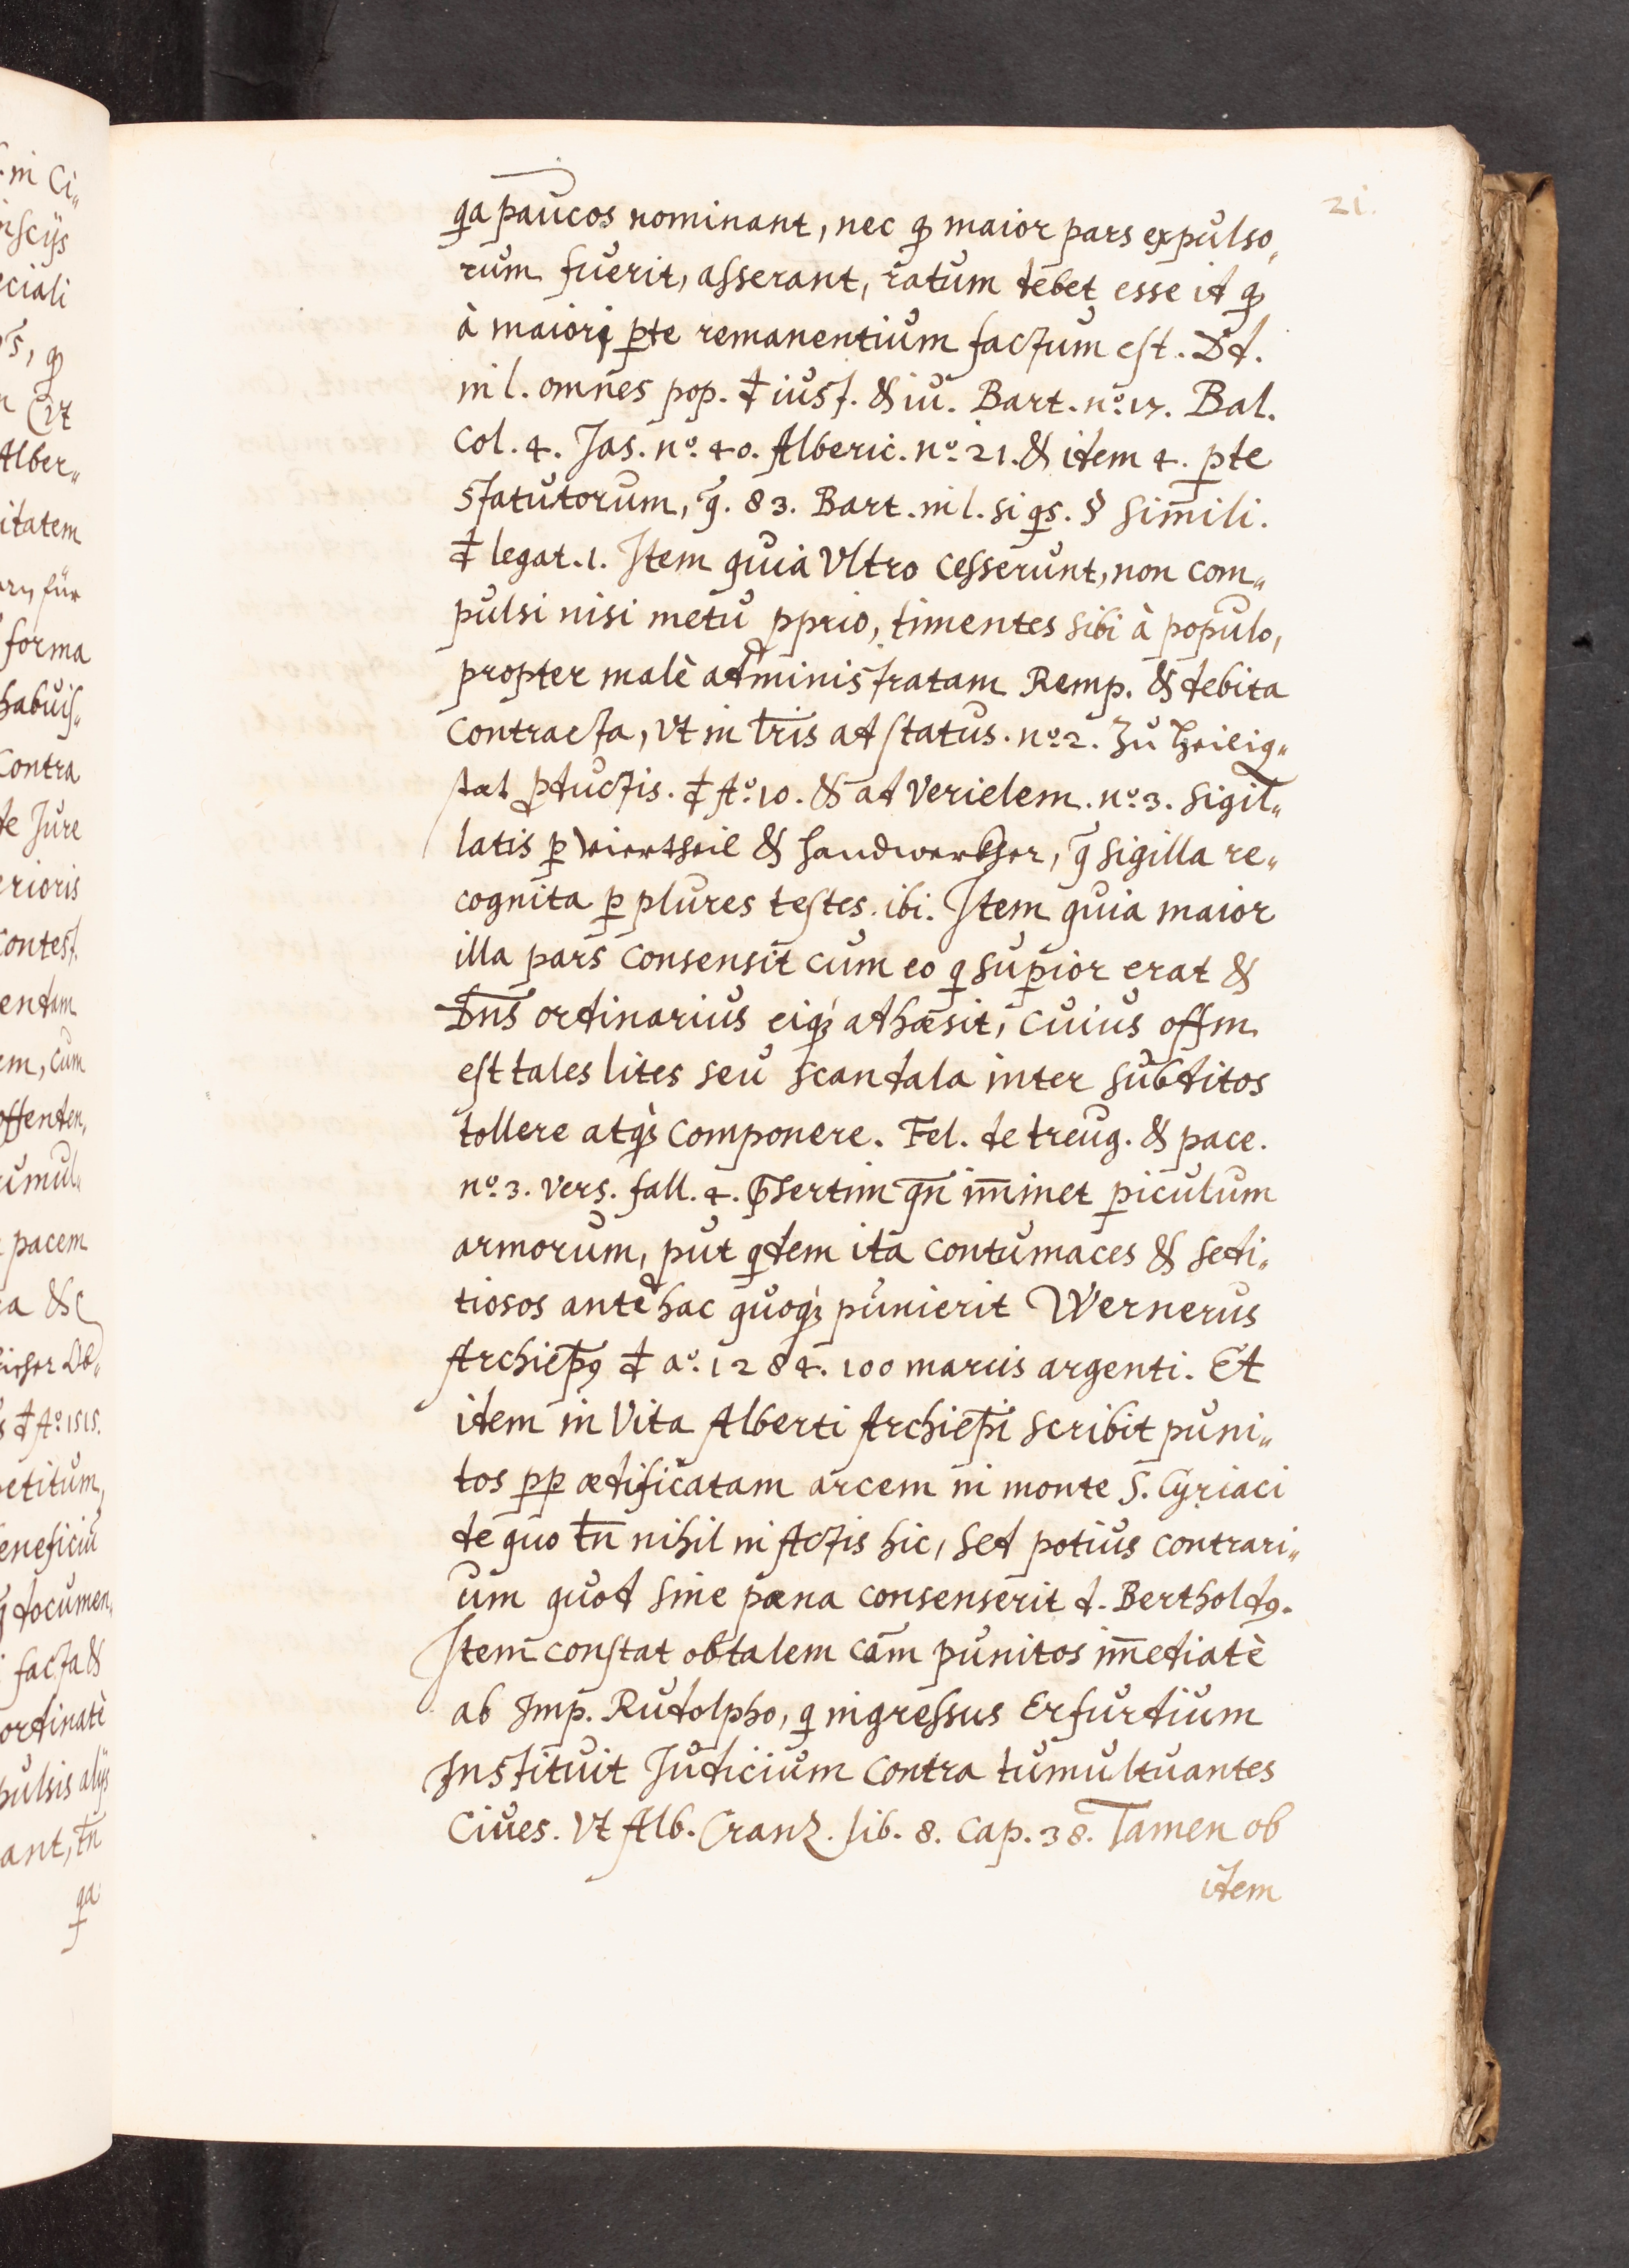 21.
qa paucos nominant, nec qđ maior pars expulso„
rum fuerit, asserant, ratum debet esse id qđ
à maiori pte remanentium factum est. Dd.
in l. omnes pop. đ iust. & iu. Bart. nº. 17. Bal.
col. 4. Jas. nº. 40. Alberic. nº. 21. & idem 4. pte
statutorum, q̃. 83. Bart. in l. si qs. § simili.
đ legat. 1. Item quia Vltro cesserunt, non com„
pulsi nisi metu pprio, timentes sibi à populo,
propter malè administratam Remp. & debita
contracta, Vt in lr̃is ad status. nº. 2. Zu Heilig„
stat pductis. đ Aº. 10. & ad Verielem. nº. 3. sigil„
latis p Viertheil & Handwerkher, q̃ sigilla re„
cognita p plures testes. ibi. Item quia maior
illa pars consensit cum eo q supior erat &
Dñs ordinarius eiqꝫ adhæsit, cuius offm
est tales lites seu scandala inter subditos
tollere atqꝫ componere. Fel. de treug. & pace.
nº. 3. vers. fall. 4. p̃sertim qñ im̃inet piculum
armorum, put qdem ita contumaces & sedi„
tiosos antehac quoqꝫ punierit Wernerus
Archiep̃9 đ aº. 1284. 100 marcis argenti. Et
idem in Vita Alberti Archiep̃i scribit puni„
tos pp ædificatam arcem in monte S. Cyriaci
de quo tñ nihil in Actis hic, sed potius contrari„
um quod sine pæna consenserit d. Berthold9.
Item constat ob talem cãm punitos im̃ediatè
ab Imp. Rudolpho, q ingressus Erfurdium
Instituit Judicium contra tumultuantes
Ciues. Vt Alb. Cranz. lib. 8. cap. 38. Tamen ob
idem